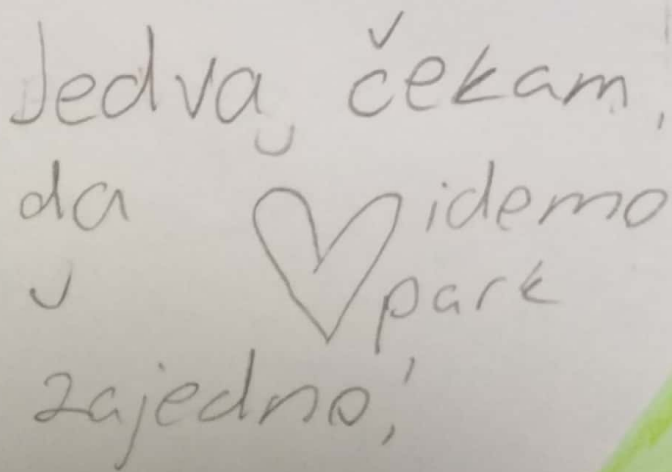 Jedva, čekam,
da idemo
u park
zajedno!